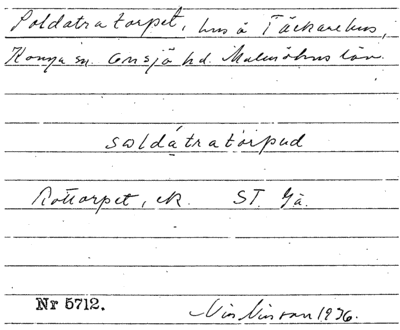 Soldatratorpet, hus å Täckarehus,
Konga sn. Onsjö hd. Malmöhus län.
soldátratọrpud
Rottorpet, ek. ST. Gä.
Nr 5712. 1936.